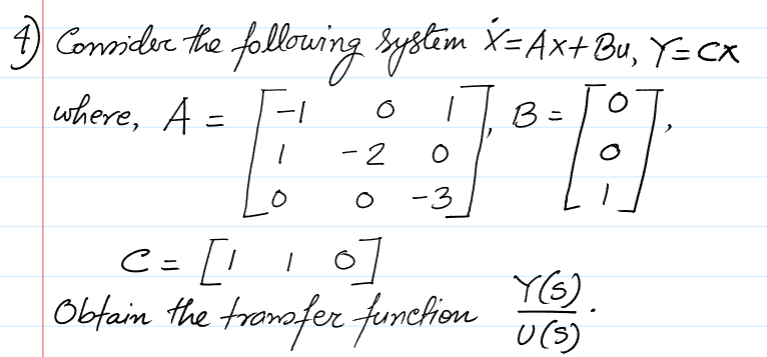 4) Consider the following system Ẋ=Ax+Bu, Y=Cx
where, A = [-1 0 1], B = [0],
1 -2 0 0
0 0 -3 1
C = [1 1 0]
Obtain the transfer function Y(S)/U(S).